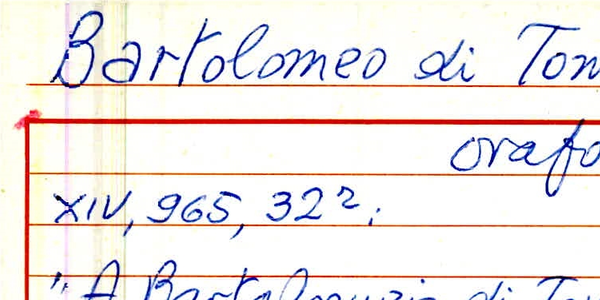 Bartolomeo di Tom
orafo
XIV, 965, 32r;
"A Bartolomuzio di Tom